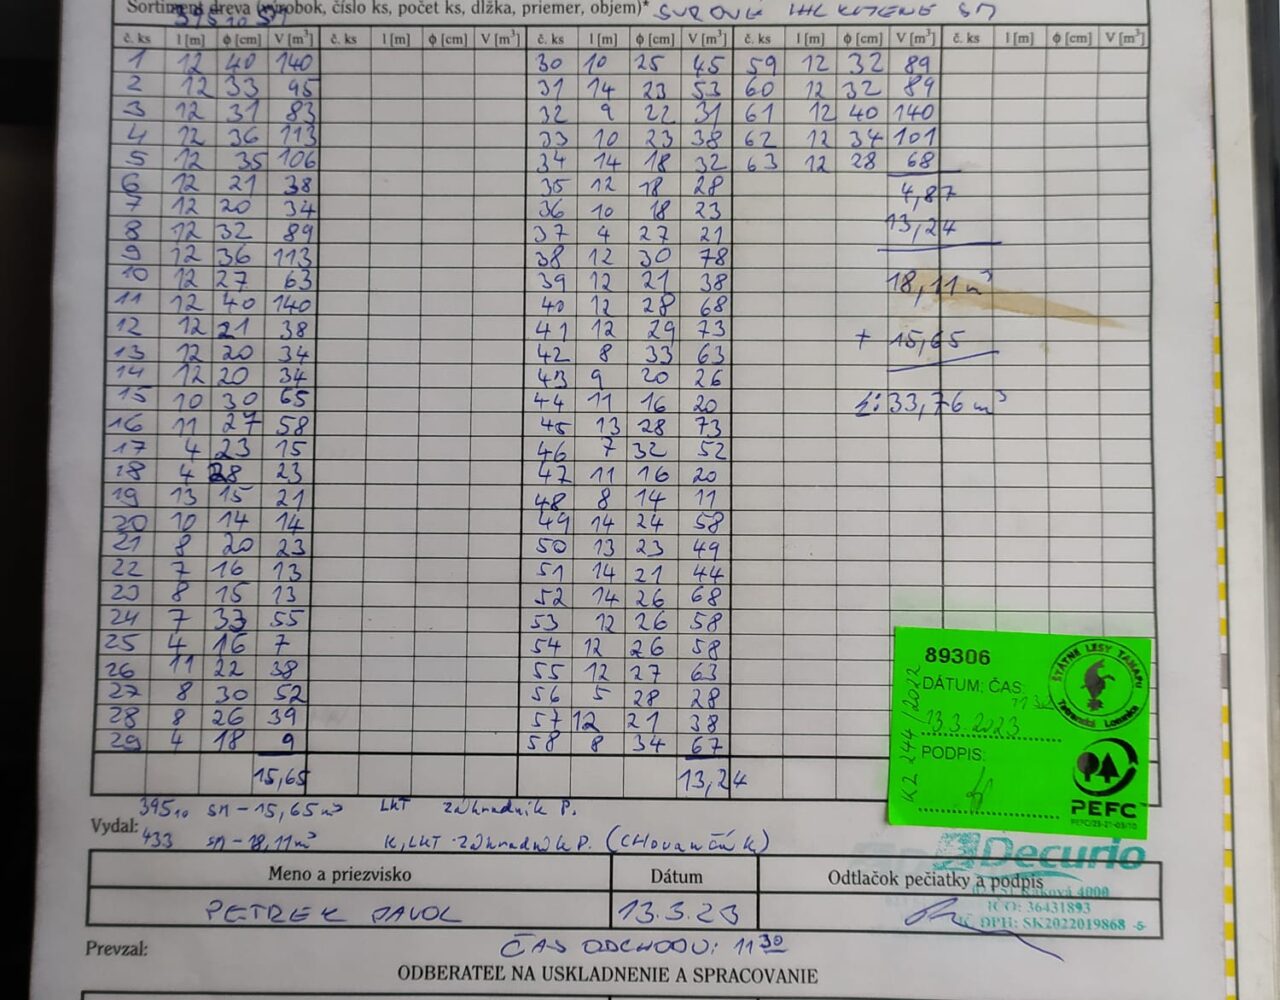 Sortiment dreva (výrobok, číslo ks, počet ks, dĺžka, priemer, objem)* SUROVÉ IHL KMENE SM
č. ks l [m] ϕ [cm] V [m³] č. ks l [m] ϕ [cm] V [m³] č. ks l [m] ϕ [cm] V [m³] č. ks l [m] ϕ [cm] V [m³] č. ks l [m] ϕ [cm] V [m³]
1 12 40 140 30 10 25 45 59 12 32 89
2 12 33 95 31 14 23 53 60 12 32 89
3 12 31 83 32 9 22 31 61 12 40 140
4 12 36 113 33 10 23 38 62 12 34 101
5 12 35 106 34 14 18 32 63 12 28 68
6 12 21 38 35 12 18 28 4,87
7 12 20 34 36 10 18 23
8 12 32 89 37 4 27 21 13,24
9 12 36 113 38 12 30 78
10 12 27 63 39 12 21 38 18,11 m³
11 12 40 140 40 12 28 68
12 12 21 38 41 12 29 73 + 15,65
13 12 20 34 42 8 33 63
14 12 20 34 43 9 20 26
15 10 30 65 44 11 16 20 Σ: 33,76 m³
16 11 27 58 45 13 28 73
17 4 23 15 46 7 32 52
18 4 28 23 47 11 16 20
19 13 15 21 48 8 14 11
20 10 14 14 49 14 24 58
21 8 20 23 50 13 23 49
22 7 16 13 51 14 21 44
23 8 15 13 52 14 26 68
24 7 33 55 53 12 26 58
25 4 16 7 54 12 26 58
26 11 22 38 55 12 27 63
27 8 30 52 56 5 28 28
28 8 26 39 57 12 21 38
29 4 18 9 58 8 34 67
15,65 13,24
395 10 SM – 15,65 m³ LKT záhradník P.
Vydal:
433 SM – 18,11 m³ K, LKT záhradník P. (CHovančík)
Meno a priezvisko Dátum Odtlačok pečiatky a podpis
PETREK PAVOL 13.3.23
Prevzal: ČAS ODCHODU: 11 30
ODBERATEĽ NA USKLADNENIE A SPRACOVANIE
89306
DÁTUM: ČAS:
13.3.2023
PODPIS:
KZ 244/2022
ŠTÁTNE LESY TANAPU
Tatranská Lomnica
PEFC
Decurio
Raková 4000
IČO: 36431893
IČ DPH: SK2022019868 -5-